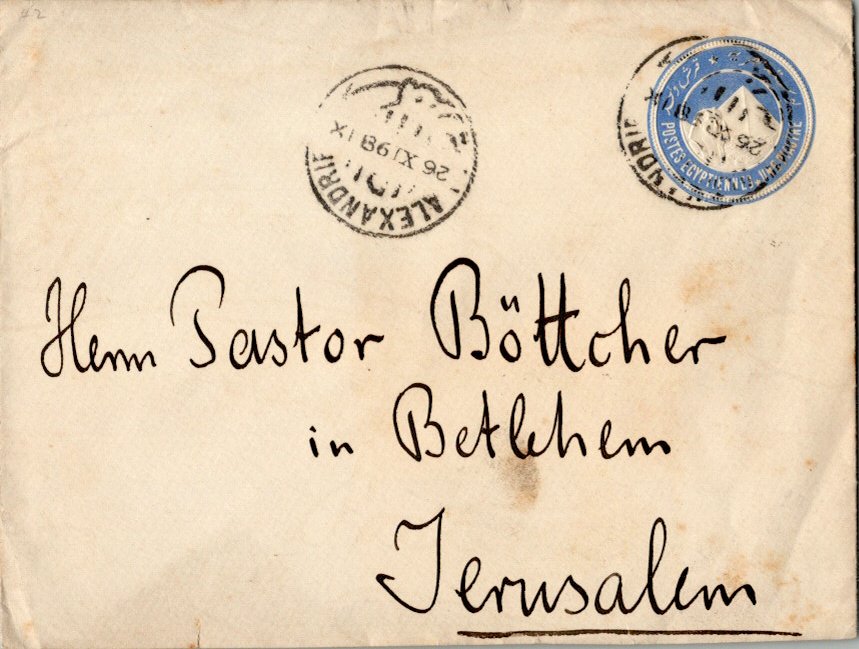 #2
ALEXANDRIE
26 XI 98 IX
قرش واحد
POSTES EGYPTIENNES. UNE PIASTRE
Herrn Pastor Böttcher
in Betlehem
Jerusalem